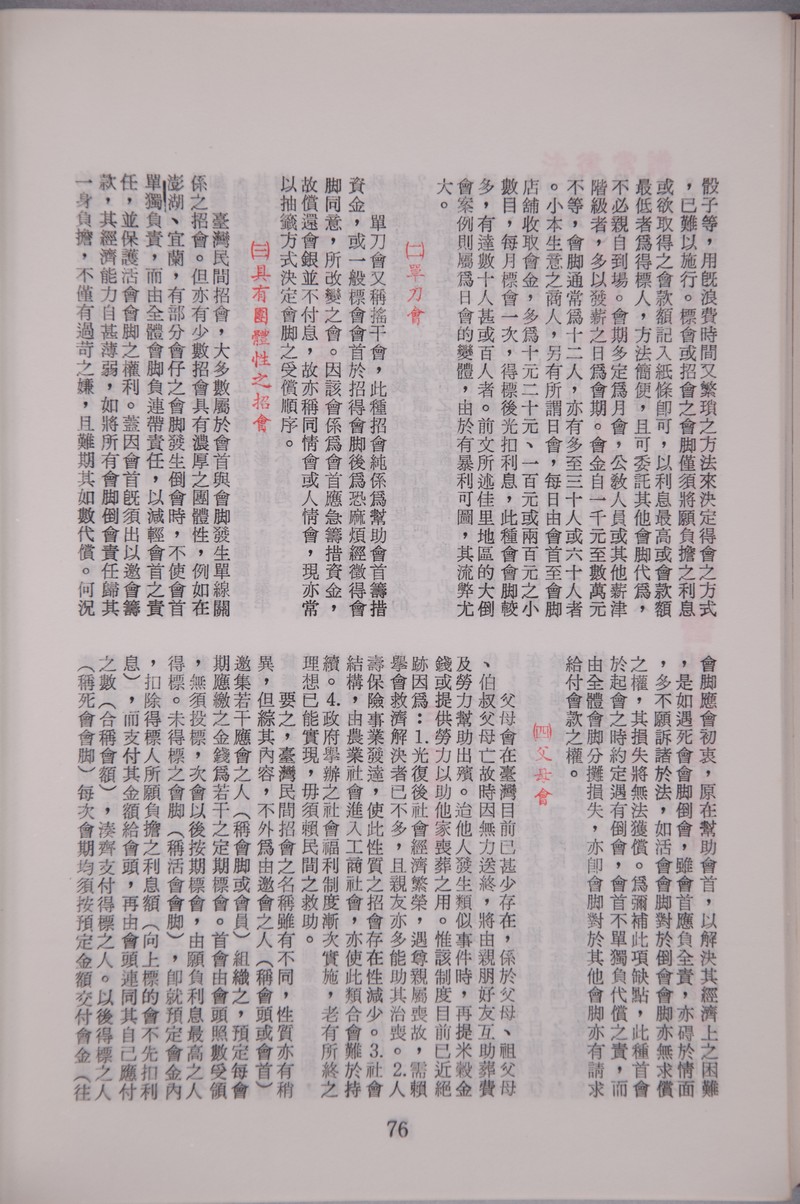 骰子等，用既浪費時間又繁瑣之方法來決定得會之方式
，已難以施行。標會或招會之會脚僅須將願負擔之利息
或欲取得之會款額記入紙條卽可，以利息最高或會款額
最低者爲得標人，方法簡便，且可委託其他會脚代爲，
不必親自到場。會期多定爲月會，公教人員或其他薪津
階級者，多以發薪之日爲會期。會金自一千元至數萬元
不等，會脚通常爲十二人，亦有多至三十人或六十人者
。小本生意之商人，另有所謂日會，每日由會首至會脚
店舖收取會金，多爲十元二十元、一百元或兩百元之小
數目，每月標會一次，得標後光扣利息，此種會會脚較
多，有達數十人甚或百人者。前文所述佳里地區的大倒
會案例則屬爲日會的變體，由於有暴利可圖，其流弊尤
大。
㈡單刀會
單刀會又稱搖干會，此種招會純係爲幫助會首籌措
資金，或一般標會會首於招得會脚後爲恐麻煩經徵得會
脚同意，所改變之會。因該會係爲會首應急籌措資金，
故償還會銀並不付息，故亦稱同情會或人情會，現亦常
以抽籤方式決定會脚之受償順序。
㈢具有團體性之招會
臺灣民間招會，大多數屬於會首與會脚發生單線關
係之招會。但亦有少數招會具有濃厚之團體性，例如在
澎湖、宜蘭，有部分會仔之會脚發生倒會時，不使會首
單獨負責，而由全體會脚負連帶責任，以減輕會首之責
任，並保護活會會脚之權利。蓋因會首旣須出以邀會籌
款，其經濟能力自甚薄弱，如將所有會脚倒會責任歸其
一身負擔，不僅有過苛之嫌，且難期其如數代償。何況
會脚應會初衷，原在幫助會首，以解決其經濟上之困難
，是如遇死會會脚倒會，雖會首應負全責，亦碍於情面
，多不願訴諸於法，如活會會脚對於倒會會脚亦無求償
之權，其損失將無法獲償。爲彌補此項缺點，此種首會
於起會之時約定遇有倒會，會首不單獨負代償之責，而
由全體會脚分攤損失，亦卽會脚對於其他會脚亦有請求
給付會款之權。
㈣父母會
父母會在臺灣目前已甚少存在，係於父母、祖父母
、伯叔父母亡故時因無力送終，將由親朋好友互助葬費
及勞力幫助出殯。迨他人發生類似事件時，再提米穀金
錢或提供勞力以助他家喪葬之用。惟該制度目前已近絕
跡因爲：1.光復後社會經濟繁榮，遇尊親屬喪故，需賴
擧會救濟解決者已不多，且親友亦多能助其治喪。2.人
壽保險事業發達，使此性質之招會存在性減少。3.社會
結構，由農業社會進入工商社會，亦使此類合會難於持
續。4.政府擧辦之社會福利制度漸次實施，老有所終之
理想已能實現，毋須賴民間之救助。
要之，臺灣民間招會之名稱雖有不同，性質亦有稍
異，但綜其內容，不外爲由邀會之人（稱會頭或會首）
邀集若干應會之人（稱會脚或會員）組織之，預定每會
期應繳之金錢爲若干之定期標會。首會由會頭照數受領
，無須投標，次會以後按期標會，由願負利息最高之人
得標。未得標之會脚（稱活會會脚），卽就預定會金內
，扣除得標人所願負擔之利息額（向上標的會不先扣利
息），而支付其金額給會頭，再由會頭連同其自己應付
之數（合稱會額），湊齊支付得標之人。以後得標之人
（稱死會會脚）每次會期均須按預定金額交付會金（往
76